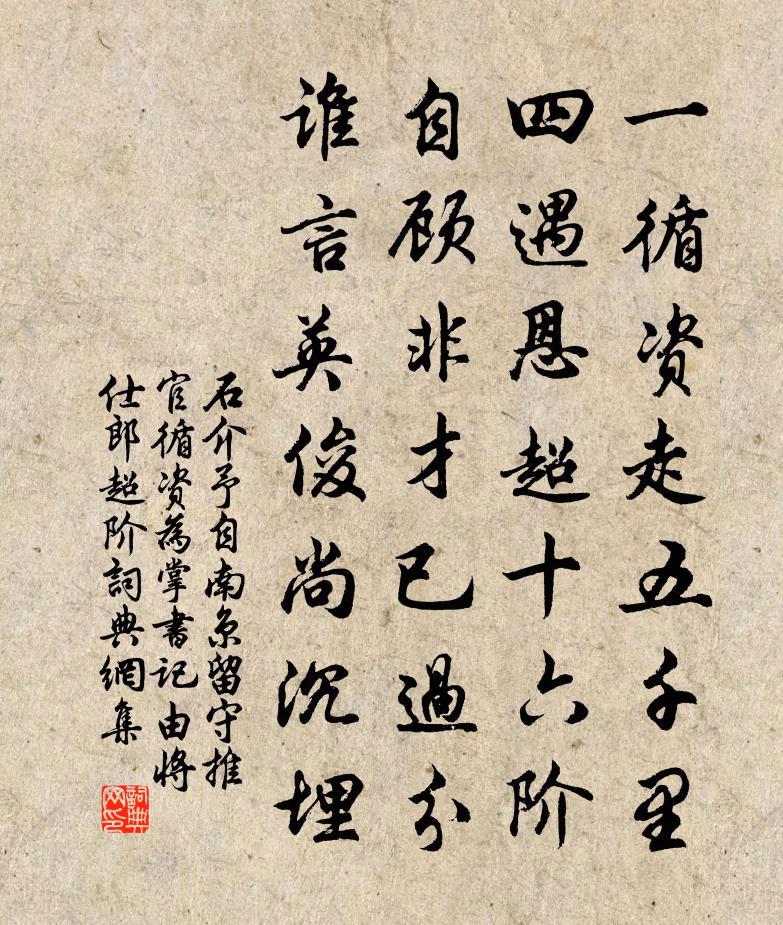 一循资走五千里
四遇恩超十六阶
自顾非才已過分
谁言英俊尚沉埋
石介予自南京留守推
官循资為掌書记由將
仕郎超阶詞典網集
詞典
网印